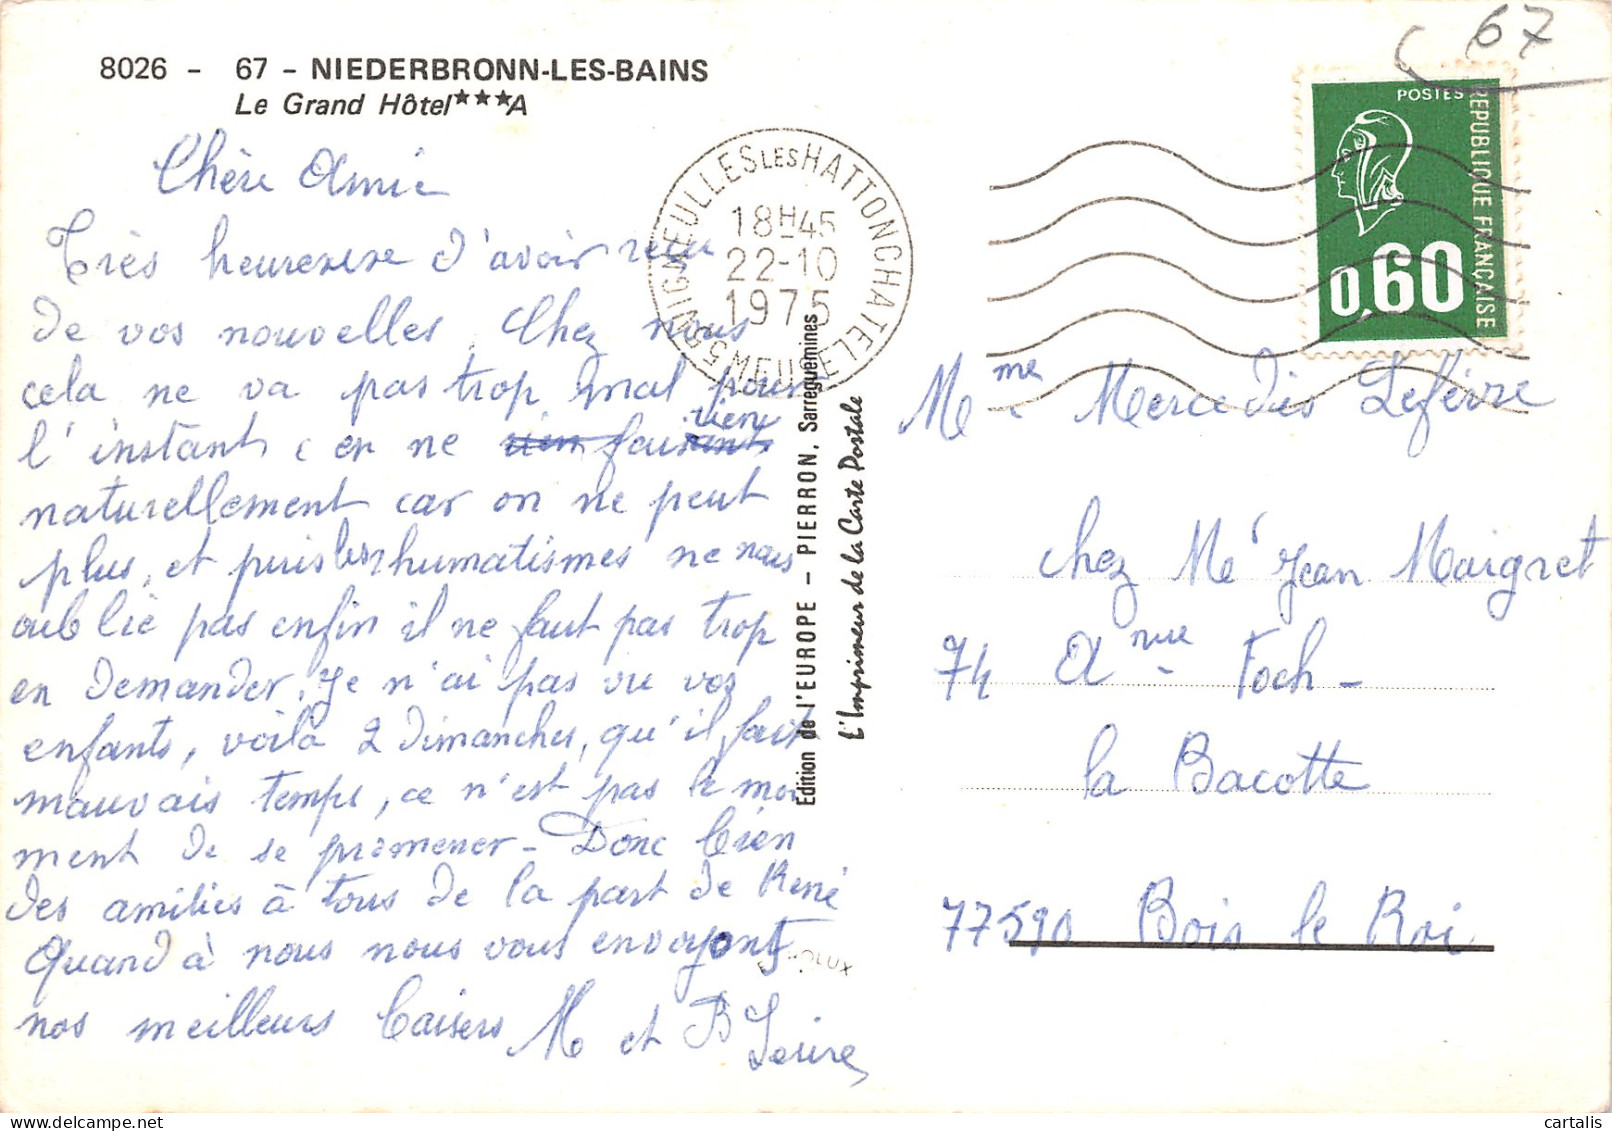 67
8026 - 67 - NIEDERBRONN-LES-BAINS
Le Grand Hôtel***A
POSTES
REPUBLIQUE FRANÇAISE
0,60
VIGNEULLES LES HATTONCHATEL
18H45
22-10
1975
55 MEUSE
Chère Amie
Très heureuse d'avoir reçu
de vos nouvelles. Chez nous
cela ne va pas trop mal pour
l'instant, en ne rien faisant
rien
naturellement car on ne peut
plus, et puis les rhumatismes ne nous
oublie pas enfin il ne faut pas trop
en demander. Je n'ai pas vu vos
enfants, voila 2 dimanches, qu'il fait
mauvais temps, ce n'est pas le mo
ment de se promener - Donc bien
des amitiés à tous de la part de René
Quand à nous nous vous envoyons
nos meilleurs baisers M et B
Edition de l'EUROPE - PIERRON, Sarreguemines
L'Imprimeur de la Carte Postale
Mme Mercedès Lefèvre
chez Me Jean Maigret
74 Anue Foch -
la Bacotte
77590 Bois le Roi
cartalis